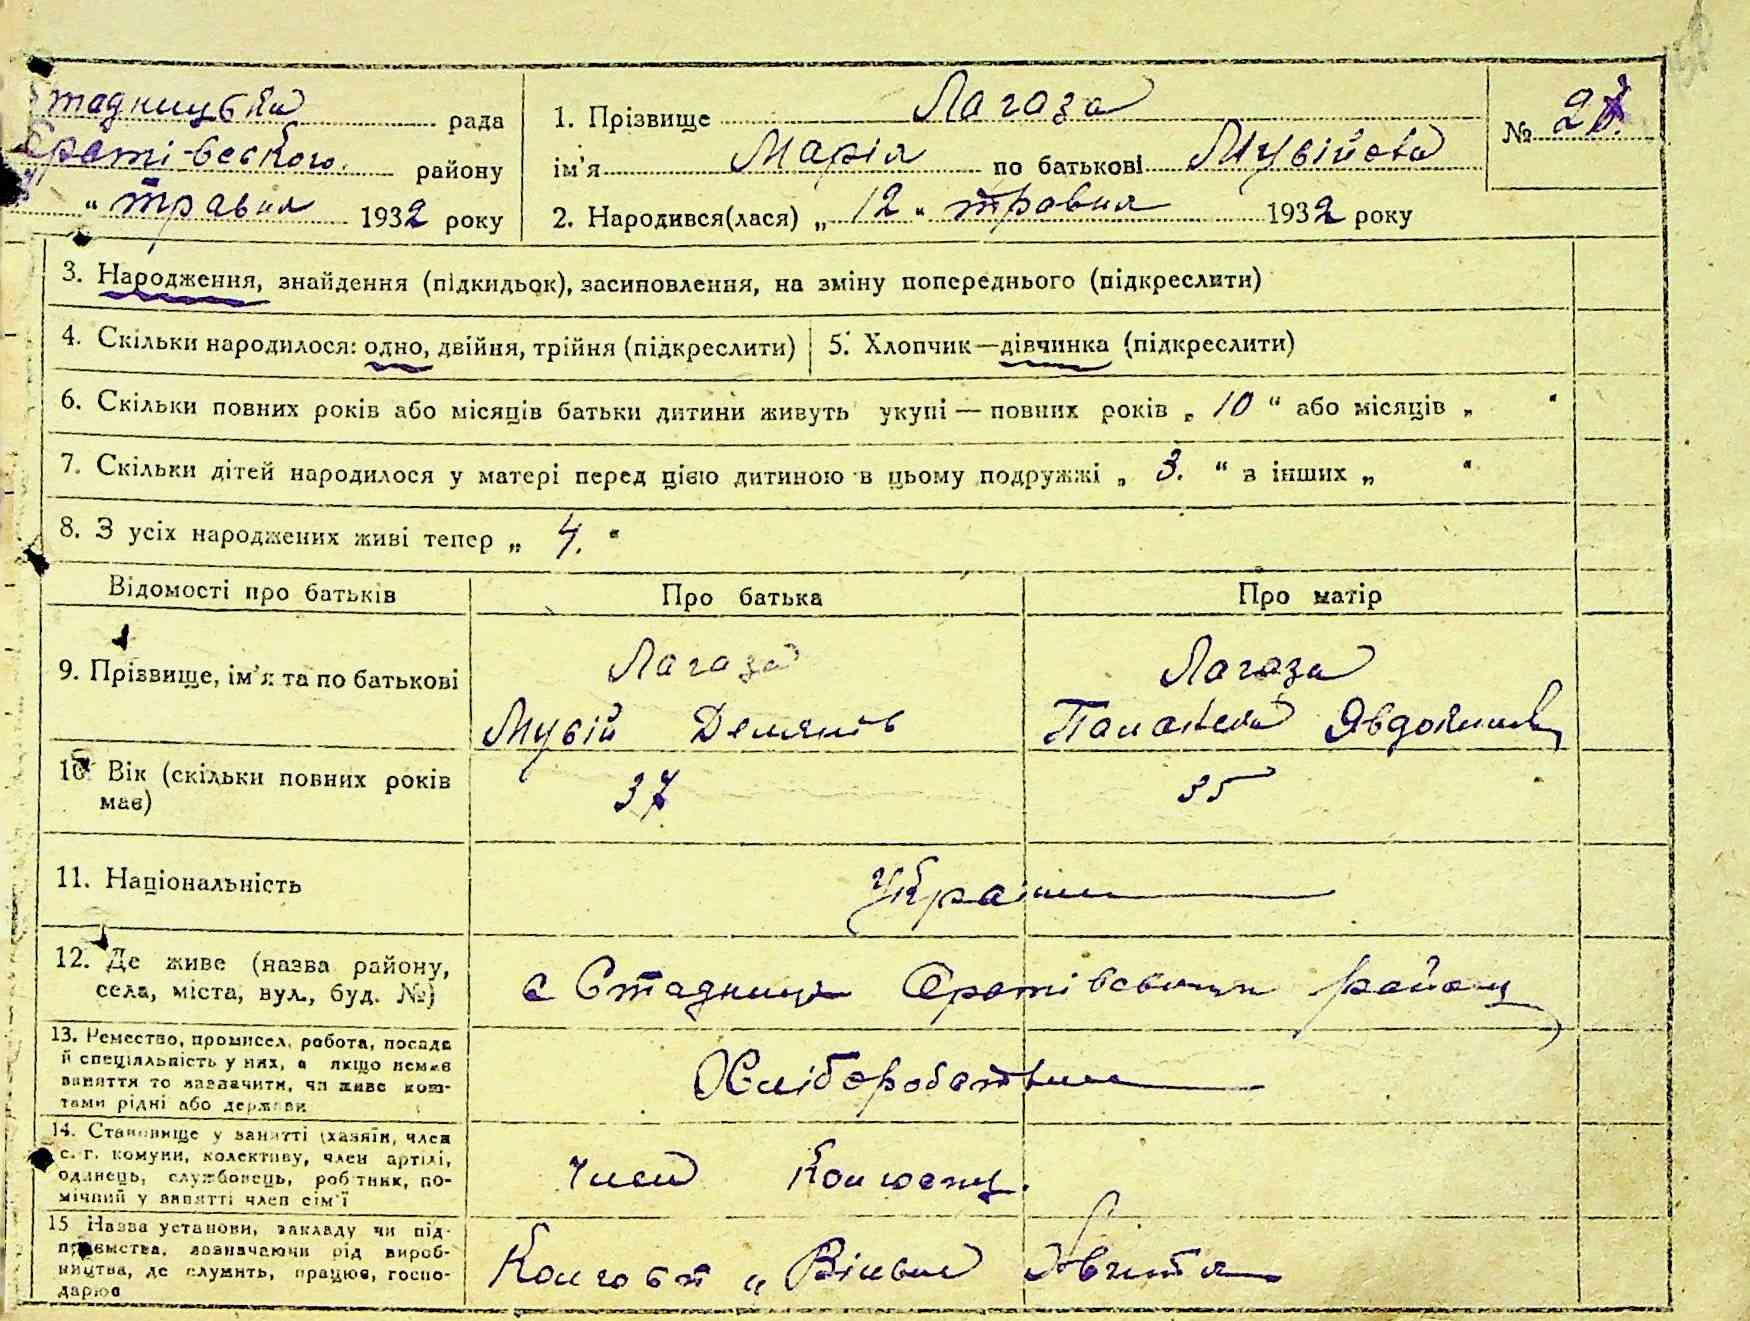 тадницька рада
району
" травня 1932 року
1. Прізвище Лагоза
ім'я Марія по батькові Мусійовна
2. Народився(лася) „ 12 " травня 1932 року
№
3. Народження, знайдення (підкидьок), засиновлення, на зміну попереднього (підкреслити)
4. Скільки народилося: одно, двійня, трійня (підкреслити)
5. Хлопчик—дівчинка (підкреслити)
6. Скільки повних років або місяців батьки дитини живуть укупі — повних років „ 10 " або місяців „ "
7. Скільки дітей народилося у матері перед цією дитиною в цьому подружжі „ 3. " в інших „ "
8. З усіх народжених живі тепер „ 4. "
Відомості про батьків
Про батька
Про матір
9. Прізвище, ім'я та по батькові
Лагоза
Мусій Демянів
Лагоза
10. Вік (скільки повних років
має)
37
35
11. Національність
Україн
12. Де живе (назва району,
села, міста, вул., буд. №)
с Стадниця район
13. Ремество, промисел, робота, посада
й спеціяльність у них, а якщо немає
заняття то зазначити, чи живе кош-
тами рідні або держави
Хліборобство
14. Становище у занятті (хазяїн, член
с. г. комуни, колективу, член артілі,
одинець, службовець, робітник, по-
мічний у занятті член сім'ї
Член Колгоспу.
15 Назва установи, закладу чи під-
приємства, зазначаючи рід вироб-
ництва, де служить, працює, госпо-
дарює
Колгосп „